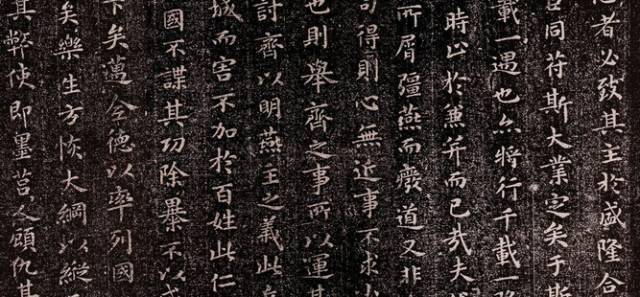 者必致其主於盛隆合
臣同符斯大業定矣于斯
載一遇也亦將行千載一隆
時止於兼并而已哉夫
所屑彊燕而廢道又非
苟得則心無近事不求小
也則舉齊之事所以運其
討齊以明燕主之義此兵
城而害不加於百姓此仁
國不謀其功除暴不以
下矣邁全德以率列國
矣樂生方恢大綱以縱
其弊使即墨莒人顧仇其